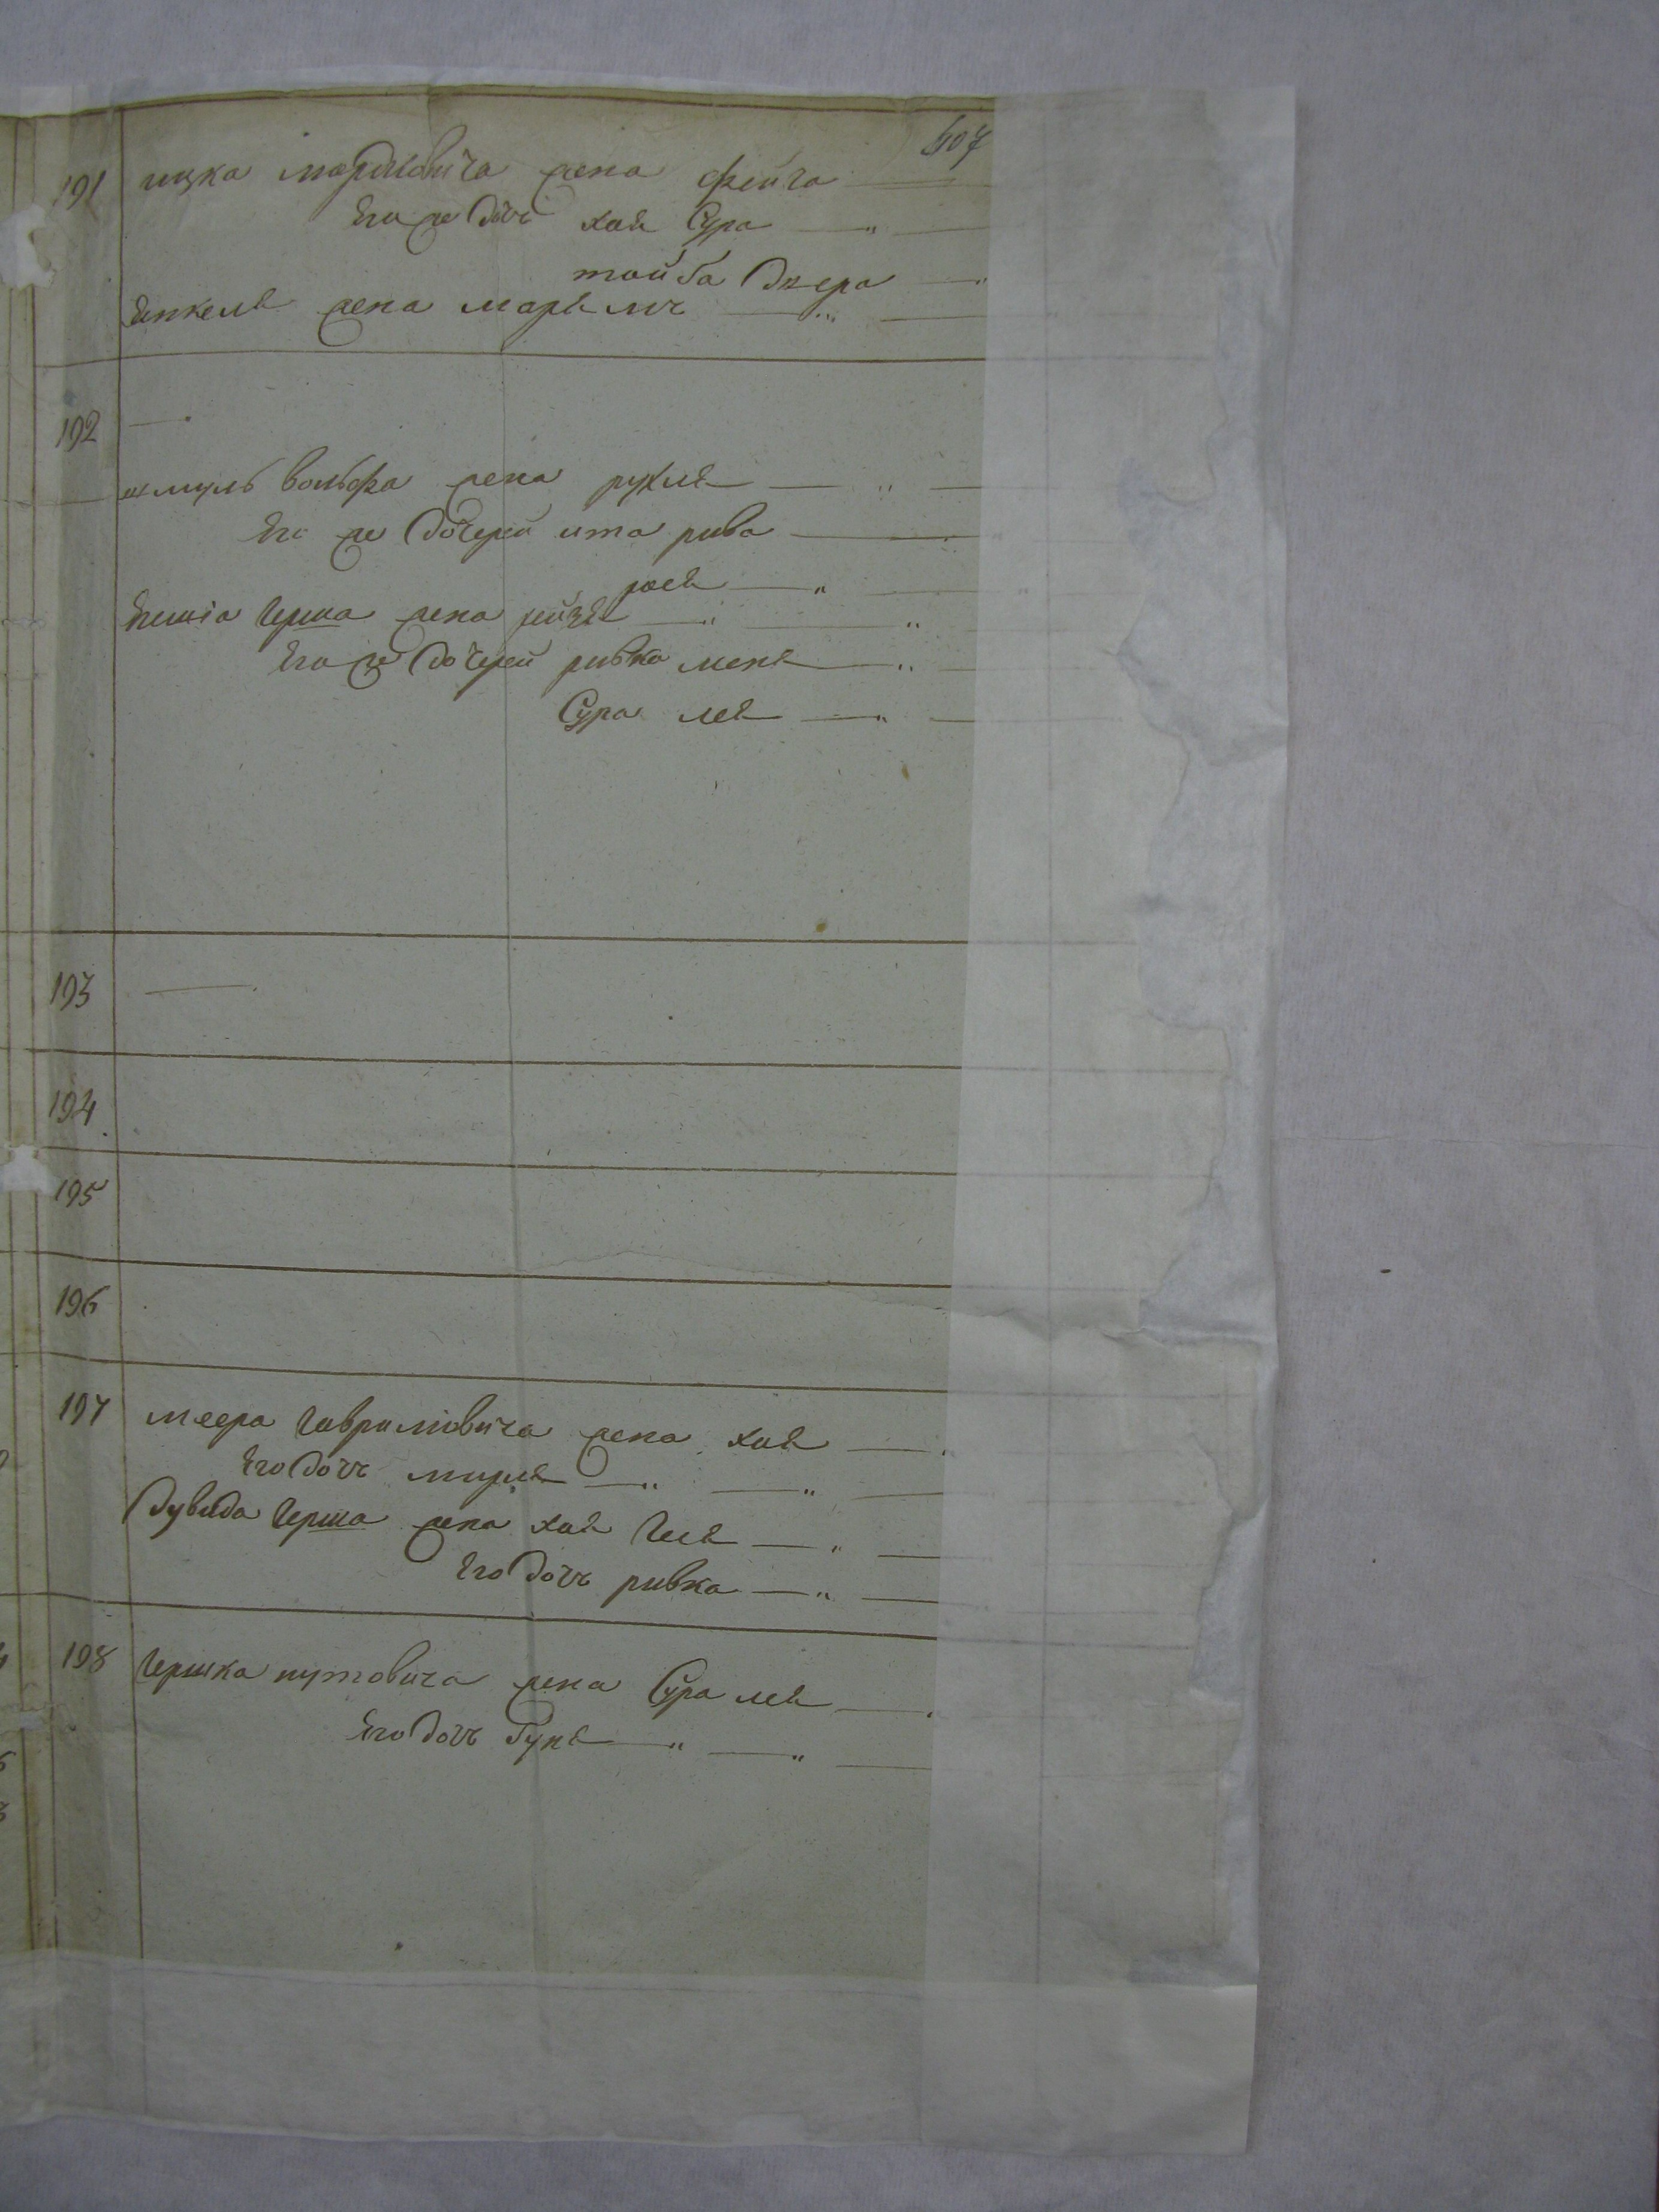 607
191 ицка мордковича жена фейга
Его же дочь хая Сура
тойба двера
Янкель жена марьямъ
192
шмуль вольфа жена рухля
Его же дочерей ита рива
рася
Гершa жена рейзя
Его же дочерей ривка меня
Сура лея
193
194
195
196
197 меера Гавриловича жена хая
Его дочь мирля
дувида Герша жена хая Геля
Его дочь ривка
198 Гершка нутовича жена Сура лея
Его дочь буня